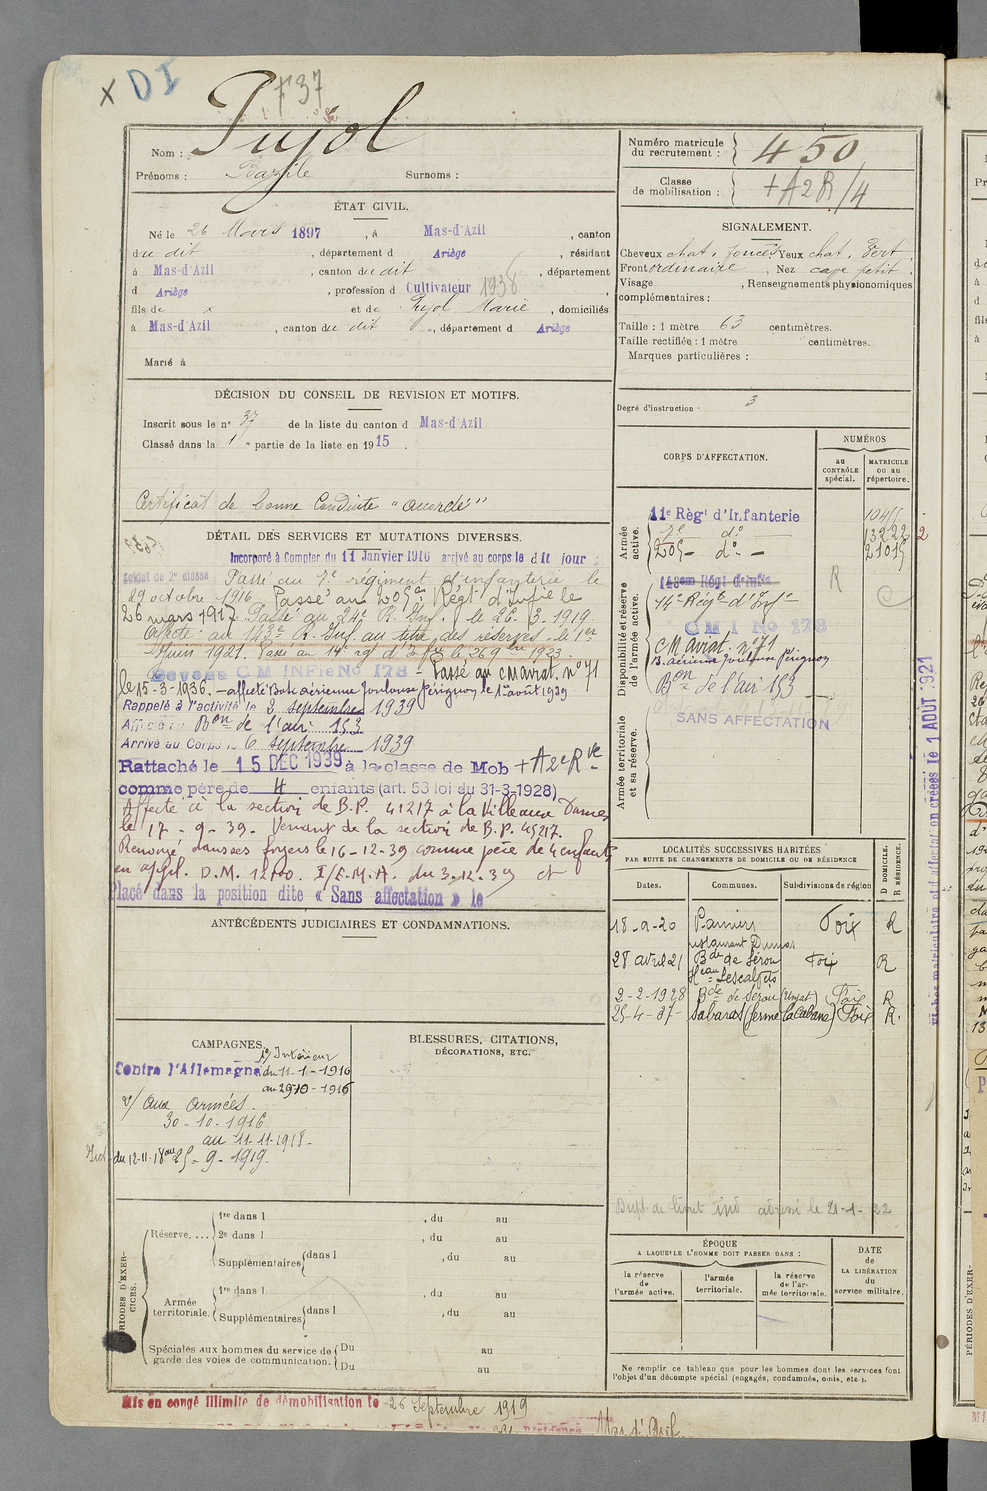 X DI F37
Nom : Pujol
Prénoms : Bazile Surnoms :
Numéro matricule du recrutement : 450
Classe de mobilisation : +A2R/4
ÉTAT CIVIL.
Né le 26 Mars 1897, à Mas-d'Azil, canton
du dit, département d Ariège, résidant
à Mas-d'Azil, canton du dit, département
d Ariège, profession d Cultivateur 1938
fils de x et de Pujol Marie, domiciliés
à Mas-d'Azil, canton du dit, département d Ariège
Marié à
SIGNALEMENT.
Cheveux chat. foncés Yeux chat. vert.
Front ordinaire, Nez petit.
Visage, Renseignements physionomiques
complémentaires :
Taille : 1 mètre 63 centimètres.
Taille rectifiée : 1 mètre centimètres.
Marques particulières :
Degré d'instruction · 3
DÉCISION DU CONSEIL DE REVISION ET MOTIFS.
Inscrit sous le n° 37 de la liste du canton d Mas-d'Azil
Classé dans la 1e partie de la liste en 1915.
Certificat de bonne Conduite "accordé"
DÉTAIL DES SERVICES ET MUTATIONS DIVERSES.
Incorporé à Compter du 11 Janvier 1916 arrivé au corps le dit jour
Soldat de 2e classe Passé au régiment d'infanterie le
29 octobre 1916. Passé au 205e Régt d'Infie le
26 mars 1917. Passé au 24e R. Inf. le 26-3-1919.
Affecté au 143e R. Inf. au titre des réserves le 1er
Juin 1921. Passé au 14e rgt d'Inf le 26 9bre 1923.
CM INFie No 178 - Passé au CM aviat. n° 71
le 15-3-1936. - affecté Base aérienne Toulouse Pérignon le 1er août 1939
Rappelé à l'activité le 2 septembre 1939
Affecté au Bon de l'air 153
Arrivé au Corps le 6 septembre 1939
Rattaché le 15 DEC 1939 à la classe de Mob +A2eRve
comme père de 4 enfants (art. 53 loi du 31-3-1928)
Affecté à la section de B.P. 41217 à la Villeaux Dames
le 17-9-39. Venant de la section de B.P. 45217.
Renvoyé dans ses foyers le 16-12-39 comme père de 4 enfants
en appl. D.M. I/E.M.A. du 3-12-39 et
Placé dans la position dite « Sans affectation » le
CORPS D'AFFECTATION.
NUMÉROS
au CONTRÔLE spécial.
MATRICULE ou au répertoire.
Armée active.
11e Régt d'Infanterie
7e do 13222
205- do - 21015
Disponibilité et réserve de l'armée active.
143eme Régt d'Infie
14e Régt d'Infie
CMI No 178
CM aviat. n° 71
B. aérienne Toulouse Pérignon
Bon de l'air 153
SANS AFFECTATION
Armée territoriale et sa réserve.
LOCALITÉS SUCCESSIVES HABITÉES
PAR SUITE DE CHANGEMENTS DE DOMICILE OU DE RÉSIDENCE
Dates. Communes. Subdivisions de région D DOMICILE. R RÉSIDENCE.
18-9-20 Pamiers Foix R
restaurant Dumas
28 avril 21 Bde de Sérou Foix R
Heau Lescalpts
2-2-1928 Bde de Sérou Foix R
25-4-37- Sabarat (ferme Lacabane) Foix R.
livret ind adressé le 21-1-22
Fiches matriculaire et d'affectation créées le 1 AOÛT 1921
ANTÉCÉDENTS JUDICIAIRES ET CONDAMNATIONS.
CAMPAGNES.
Contre l'Allemagne 1°/ Intérieur
du 11-1-1916
au 29-10-1916
2°/ Aux armées.
30-10-1916
au 11-11-1918.
du 12-11-18 au 25-9-1919.
BLESSURES, CITATIONS,
DÉCORATIONS, ETC.
PÉRIODES D'EXERCICES.
Réserve, ... 1re dans l, du au
2e dans l, du au
Supplémentaires dans l, du au
Armée territoriale. 1re dans l, du au
Supplémentaires dans l, du au
Spéciales aux hommes du service de garde des voies de communication. Du au
Du au
ÉPOQUE
A LAQUELLE L'HOMME DOIT PASSER DANS :
la réserve de l'armée active. l'armée territoriale. la réserve de l'armée territoriale.
DATE de LA LIBÉRATION du service militaire.
Ne remplir ce tableau que pour les hommes dont les services font
l'objet d'un décompte spécial (engagés, condamnés, omis, etc.).
Mis en congé illimité de démobilisation le 26 Septembre 1919
Mas d'Azil
PÉRIODES D'EXER-